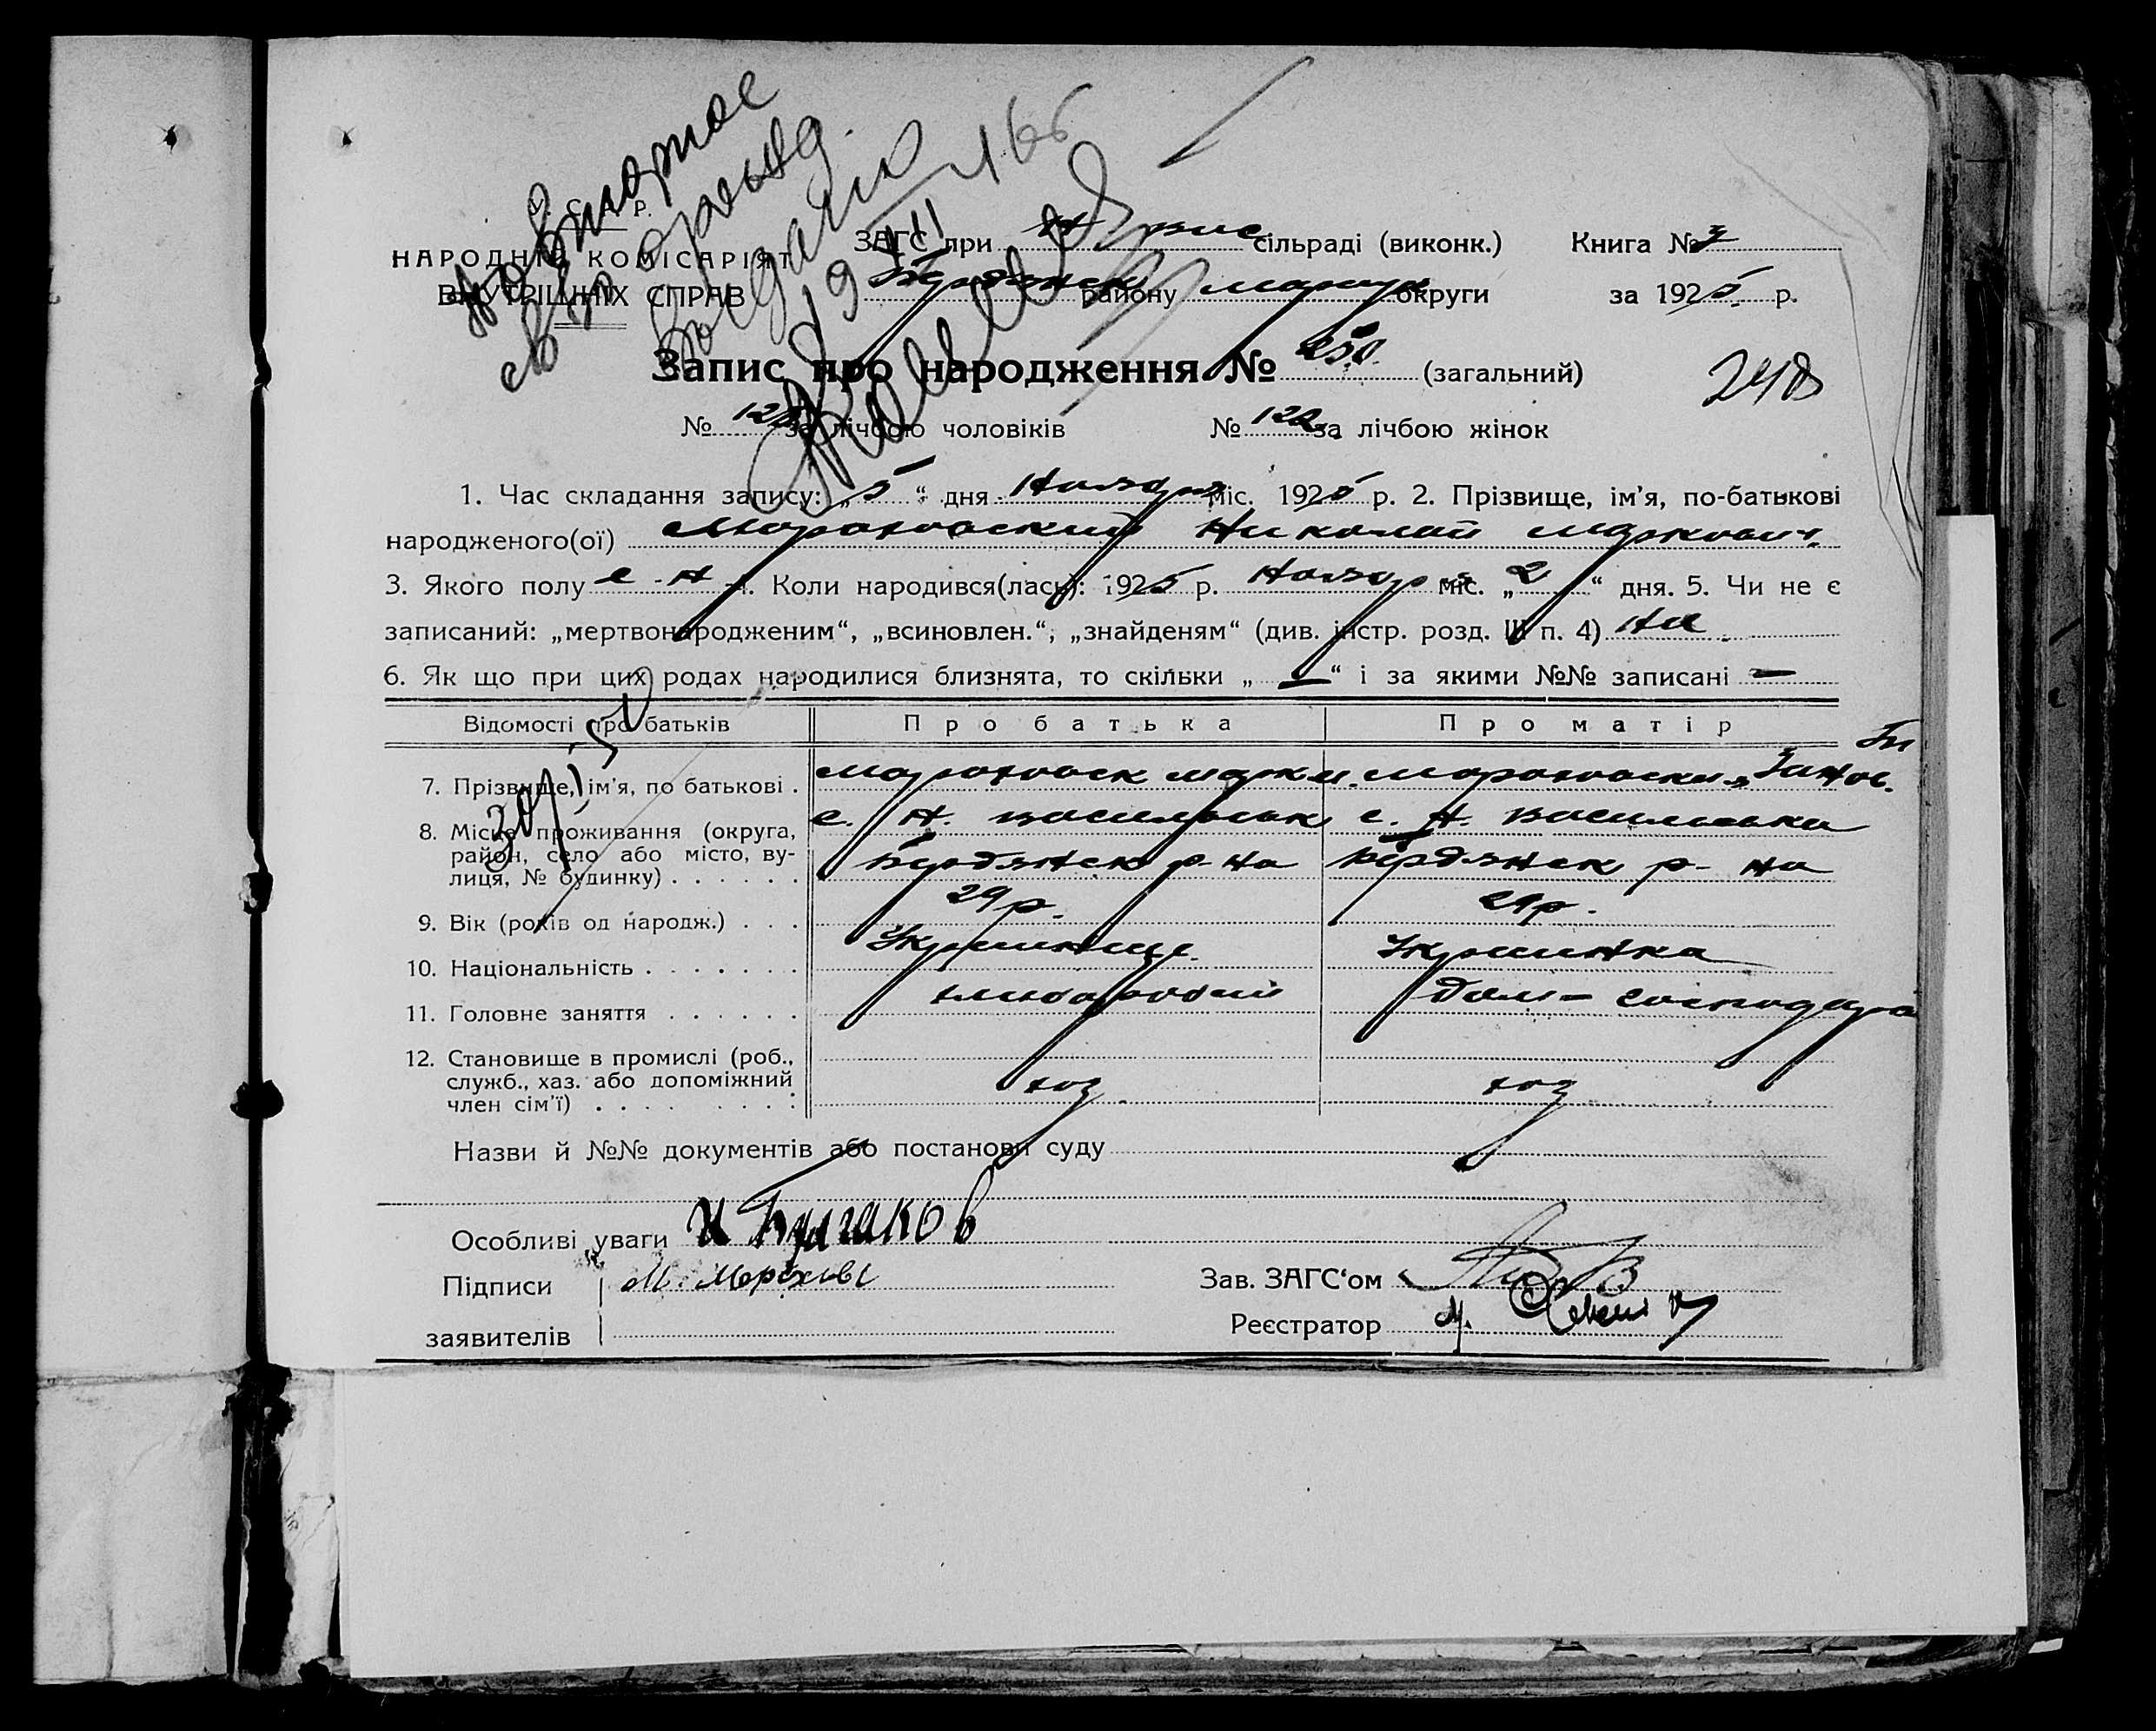 Повторное
св во о рожд.
выдано
166
У. С. Р. Р.
НАРОДНІЙ КОМІСАРІЯТ
ВНУТРІШНІХ СПРАВ
ЗАГС при Н Вас сільраді (виконк.) Книга № 3
Бердянск району Мариуп округи за 1925 р.
Запис про народження № 250 (загальний)
248
№ 128 за лічбою чоловіків № 122 за лічбою жінок
1. Час складання запису: „5“ дня Ноября міс. 1925 р. 2. Прізвище, ім’я, по-батькові
народженого(ої) Мороховский Николай Маркович
3. Якого полу 4. Коли народився(лась): 1925 р. Ноября міс. „2“ дня. 5. Чи не є
записаний: „мертвонародженим“, „всиновлен.“, „знайденям“ (див. інстр. розд. III п. 4) Не
6. Як що при цих родах народилися близнята, то скільки „ — “ і за якими №№ записані —
Відомості про батьків Про батька Про матір
7. Прізвище, ім’я, по батькові . Мороховск Марк И. Мороховски
8. Місце проживання (округа, район, село або місто, вулиця, № будинку) . . . . . . с. Н. Васильевк с. Н. Васильевка
Бердянск р-на Бердянск р-на
9. Вік (років од народж.) . . . 29 р. 29 р.
10. Національність . . . . . . . Украинец Украинка
11. Головне заняття . . . . . . хлибороб Дом-господар
12. Становище в промислі (роб.,
служб., хаз. або допоміжний
член сім’ї) . . . . . . . . . хоз хоз
Назви й №№ документів або постанови суду
Особливі уваги И Булгаков
Підписи М. Морохов Зав. ЗАГС‘ом
заявителів Реєстратор